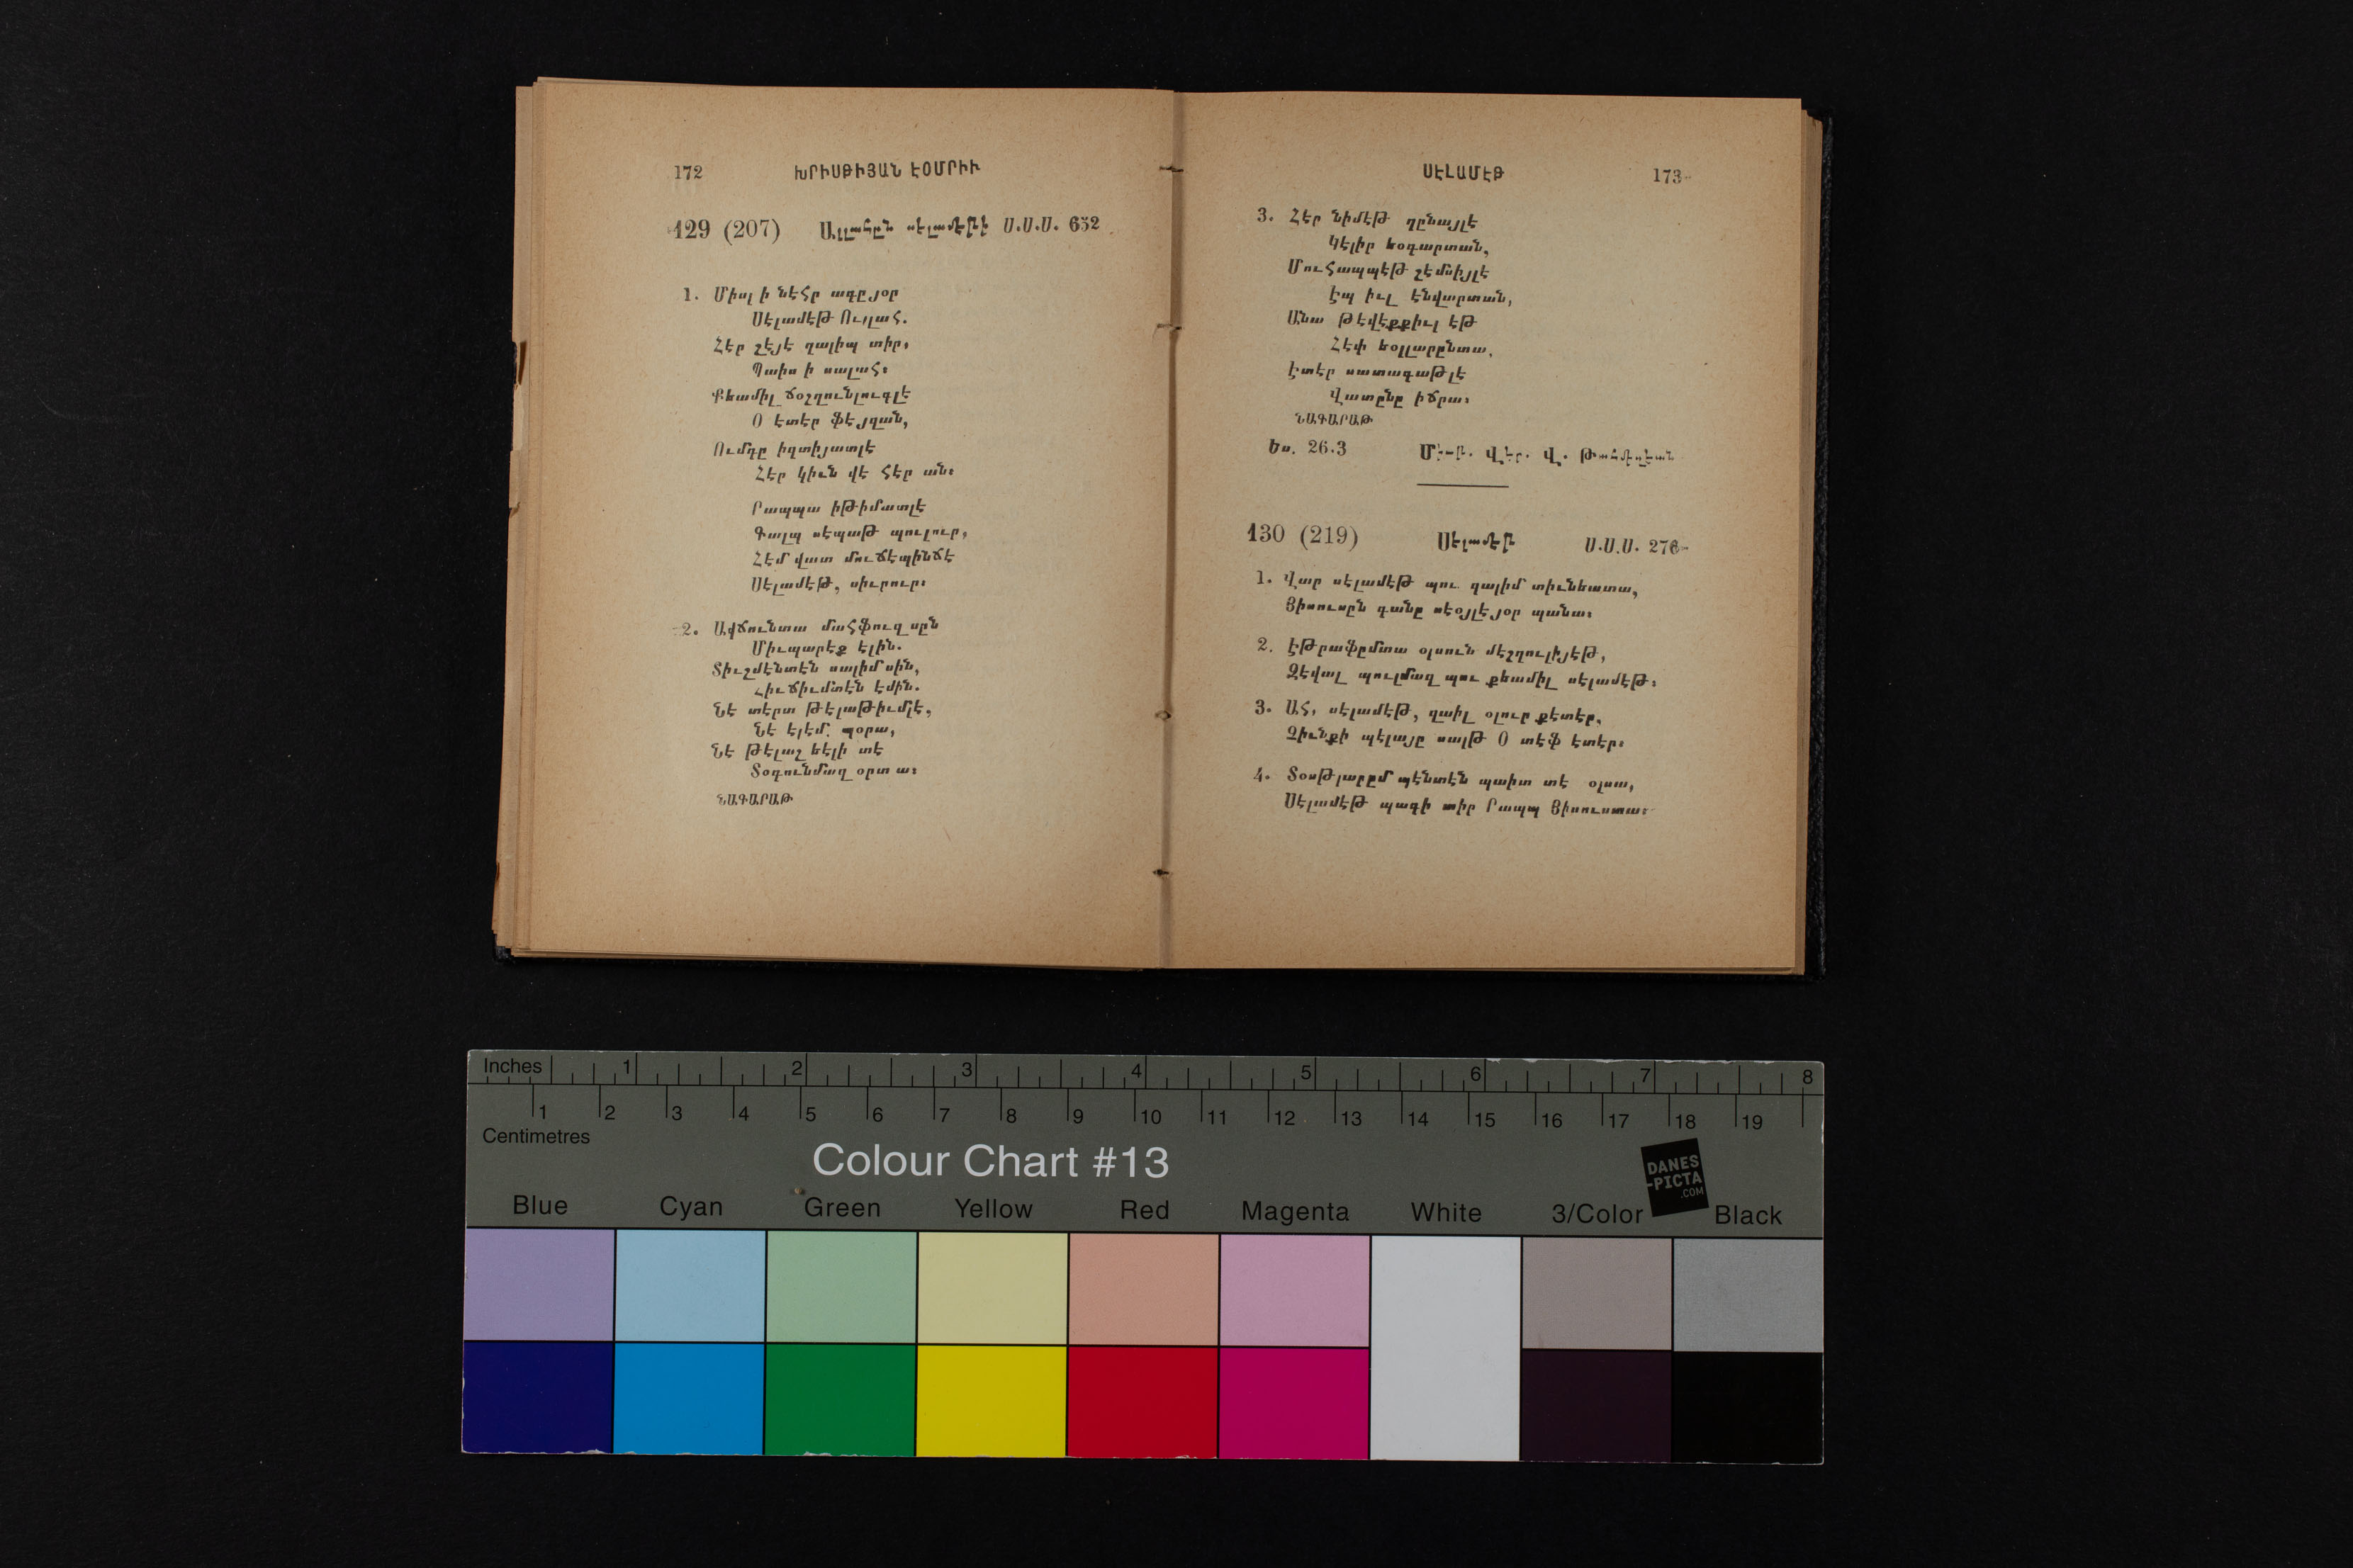 172 ԽՐԻՍԹԻՅԱՆ ԷՕՄՐԻՒ
129 (207) Ալլահըն սէլամէթի Ս.Ս.Ս. 652
1. Միսլ ի նէհր ագըյօր
Սէլամէթ Ուլլահ.
Հէր շէյէ ղալիպ տիր,
Պաիս ի սալահ։
Քեամիլ ճօշղունլուգլէ
Օ էտէր ֆէյզան,
Ումղը իզտիյատլէ
Հէր կիւն վէ հէր ան։
Րապպա իթիմատլէ
Գալպ սէպաթ պուլուր,
Հէմ վատ մուճէպինճէ
Սէլամէթ, սիւրուր։
2. Ավճունտա մահֆուզ սըն
Միւպարէք էլին.
Տիւշմէնտէն սալիմ սին,
Հիւճիւմտէն էմին.
Նէ տէրտ թէլաթիւմլէ,
Նէ էլէմ զօրա,
Նէ թէլաշ եէլի տէ
Տօգունմազ օրտա։
ՆԱԳԱՐԱԹ
ՍԷԼԱՄԷԹ 173
3. Հէր նիմէթ ղընայլէ
Կէլիր եօգարտան,
Մուհապպէթ շէմսիյլէ
Էպ իւլ էնվարտան,
Անա թէվէքքիւլ էթ
Հէփ եօլլարընտա.
Էտէր սատագաթլէ
Վատընը իճրա։
ՆԱԳԱՐԱԹ
Ես. 26.3 Վէր. Վ.
130 (219) Սէլամէթ Ս.Ս.Ս. 276
1. Վար սէլամէթ պու ղալիմ տիւնեատա,
Յիսուսըն գանը սէօյլէյօր պանա։
2. Էթրաֆըմտա օլսուն մէշղուլիյէթ,
Զէվալ պուլմազ պու քեամիլ սէլամէթ։
3. Ահ, սէլամէթ, ղաիլ օլուր քէտէր,
Զիւնքի պէլայը սալթ Օ տէֆ էտէր։
4. Տօսթլարըմ պէնտէն պաիտ տէ օլսա,
Սէլամէթ պագի տիր Րապպ Յիսուստա։
Inches 1 2 3 4 5 6 7 8
1 2 3 4 5 6 7 8 9 10 11 12 13 14 15 16 17 18 19
Centimetres
Colour Chart #13
DANES
-PICTA
.COM
Blue Cyan Green Yellow Red Magenta White 3/Color Black